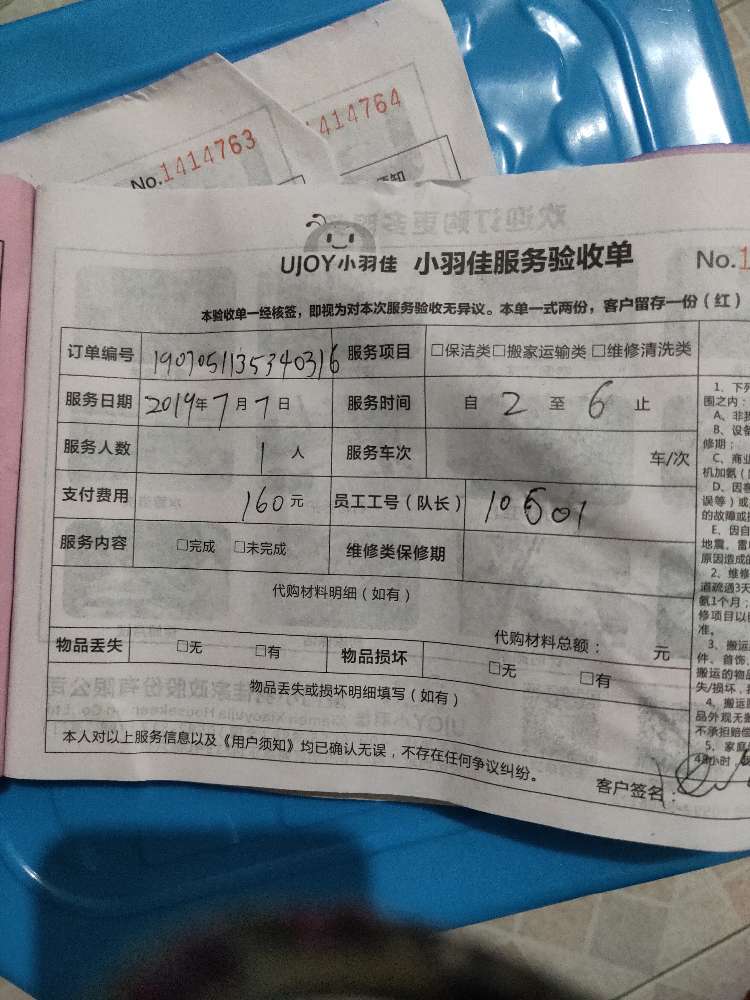 1414764
No.1414763
须知
UJOY小羽佳 小羽佳服务验收单 No.1
本验收单一经核签，即视为对本次服务验收无异议。本单一式两份，客户留存一份（红）
订单编号 1907051135340316 服务项目 □保洁类□搬家运输类□维修清洗类
服务日期 2019年7月7日 服务时间 自 2 至 6 止
服务人数 1 人 服务车次 车/次
支付费用 160元 员工工号（队长） 10601
服务内容 □完成 □未完成 维修类保修期
代购材料明细（如有）
代购材料总额： 元
物品丢失 □无 □有 物品损坏 □无 □有
物品丢失或损坏明细填写（如有）
本人对以上服务信息以及《用户须知》均已确认无误，不存在任何争议纠纷。
客户签名：
1、下列
围之内：
A、非
B、设备
修期；
C、商业
机加氨（
D、因客
误等）或
的故障或
E、因自
地震、雷
原因造成的
2、维修
道疏通3天
氨1个月；
修项目以
准。
3、搬运
件、首饰
搬运的物品
失/损坏，
4、搬运
品外观无
不承担赔偿
5、家庭
48小时，